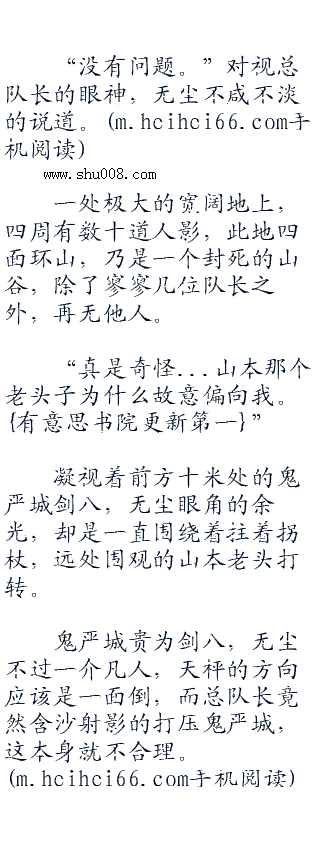 “没有问题。”对视总
队长的眼神，无尘不咸不淡
的说道。(m.hcihci66.com手
机阅读)
www.shu008.com
一处极大的宽阔地上，
四周有数十道人影，此地四
面环山，乃是一个封死的山
谷，除了寥寥几位队长之
外，再无他人。
“真是奇怪...山本那个
老头子为什么故意偏向我。
{有意思书院更新第一}”
凝视着前方十米处的鬼
严城剑八，无尘眼角的余
光，却是一直围绕着拄着拐
杖，远处围观的山本老头打
转。
鬼严城贵为剑八，无尘
不过一介凡人，天秤的方向
应该是一面倒，而总队长竟
然含沙射影的打压鬼严城，
这本身就不合理。
(m.hcihci66.com手机阅读)